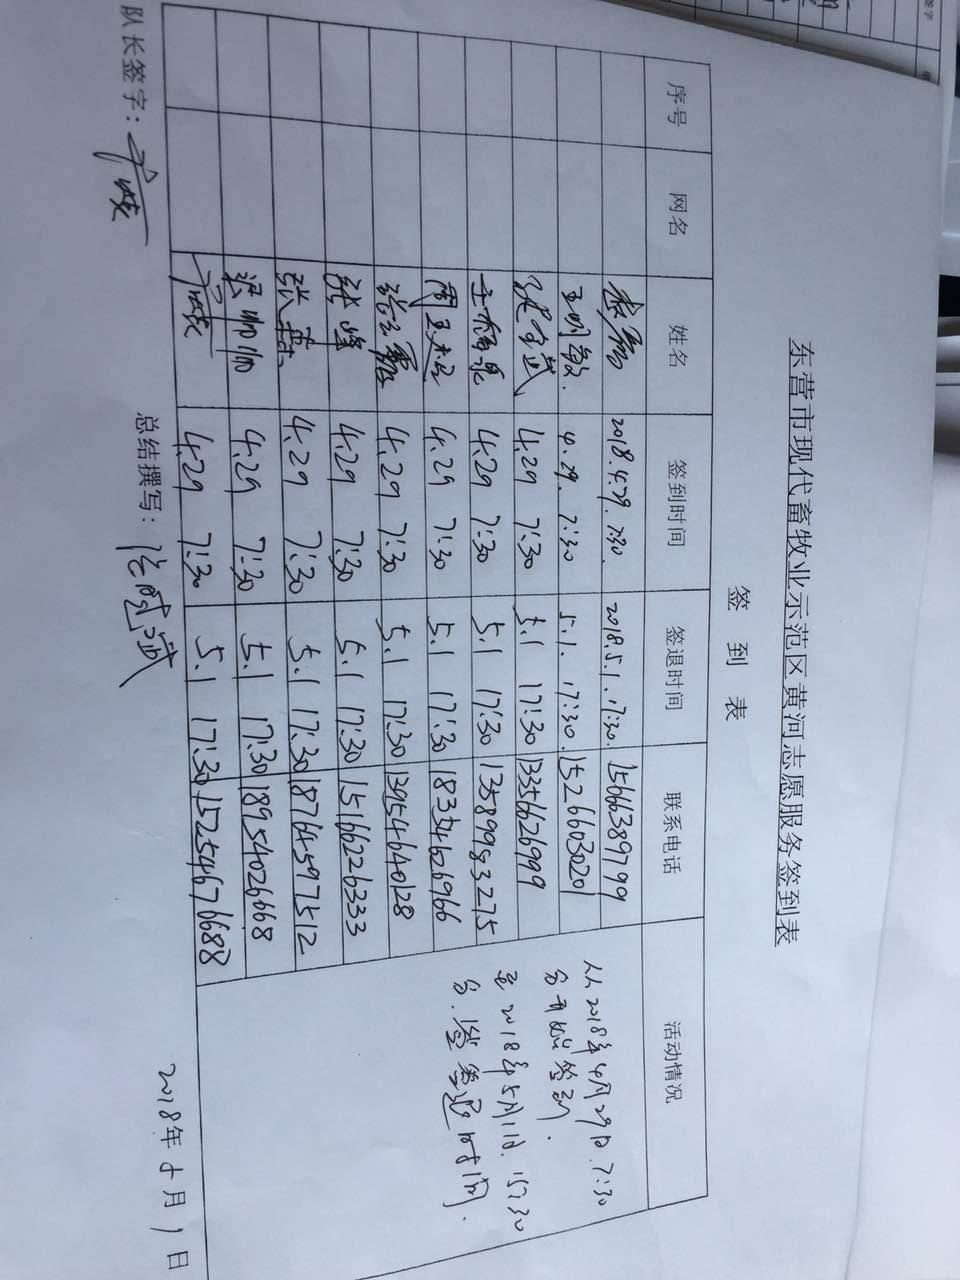 东营市现代畜牧业示范区黄河志愿服务签到表
签 到 表
序号 网名 姓名 签到时间 签退时间 联系电话 活动情况
2018.4.29. 7:30. 2018.5.1. 17:30. 15663897799
王明敏. 4.29. 7:30 5.1. 17:30. 1526603020
4.29 7:30 5.1 17:30 13356626999
4.29 7:30 5.1 17:30 13589983275
4.29 7:30 5.1 17:30 18354626966
4.29 7:30 5.1 17:30 13954640128
张峰 4.29 7:30 5.1 17:30 15166226333
张燕 4.29 7:30 5.1 17:30 18764597512
梁帅帅 4.29 7:30 5.1 17:30 18954026668
4.29 7:30 5.1 17:30 15254676688
从2018年4月29日7:30
分开始签到.
至2018年5月1日.17:30
分.签退时间.
队长签字: 总结撰写:
2018年5月1日